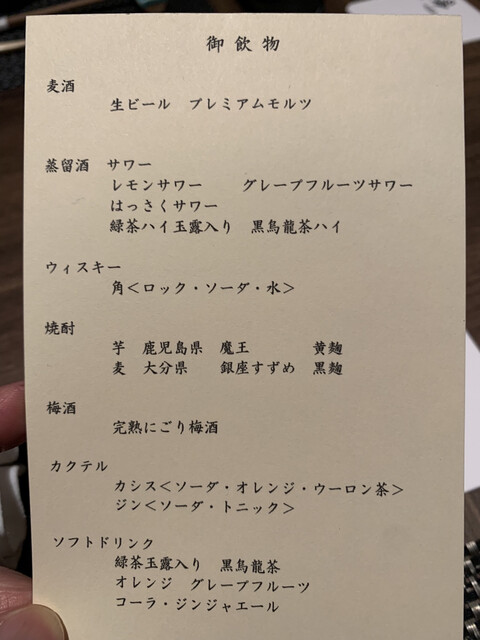 御飲物
麦酒
生ビール プレミアムモルツ
蒸留酒 サワー
レモンサワー グレープフルーツサワー
はっさくサワー
緑茶ハイ玉露入り 黒烏龍茶ハイ
ウィスキー
角<ロック・ソーダ・水>
焼酎
芋 鹿児島県 魔王 黄麹
麦 大分県 銀座すずめ 黒麹
梅酒
完熟にごり梅酒
カクテル
カシス<ソーダ・オレンジ・ウーロン茶>
ジン<ソーダ・トニック>
ソフトドリンク
緑茶玉露入り 黒烏龍茶
オレンジ グレープフルーツ
コーラ・ジンジャエール